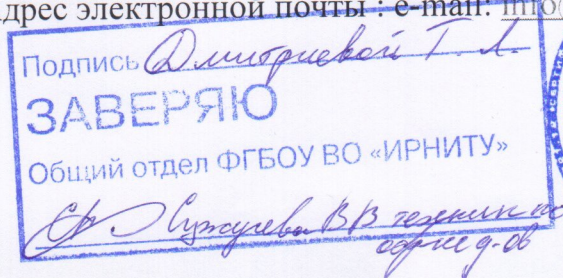 дрес электронной почты : e-mail: info@
Подпись Дмитриевой Т. Л.
ЗАВЕРЯЮ
Общий отдел ФГБОУ ВО «ИРНИТУ»
В В техник по